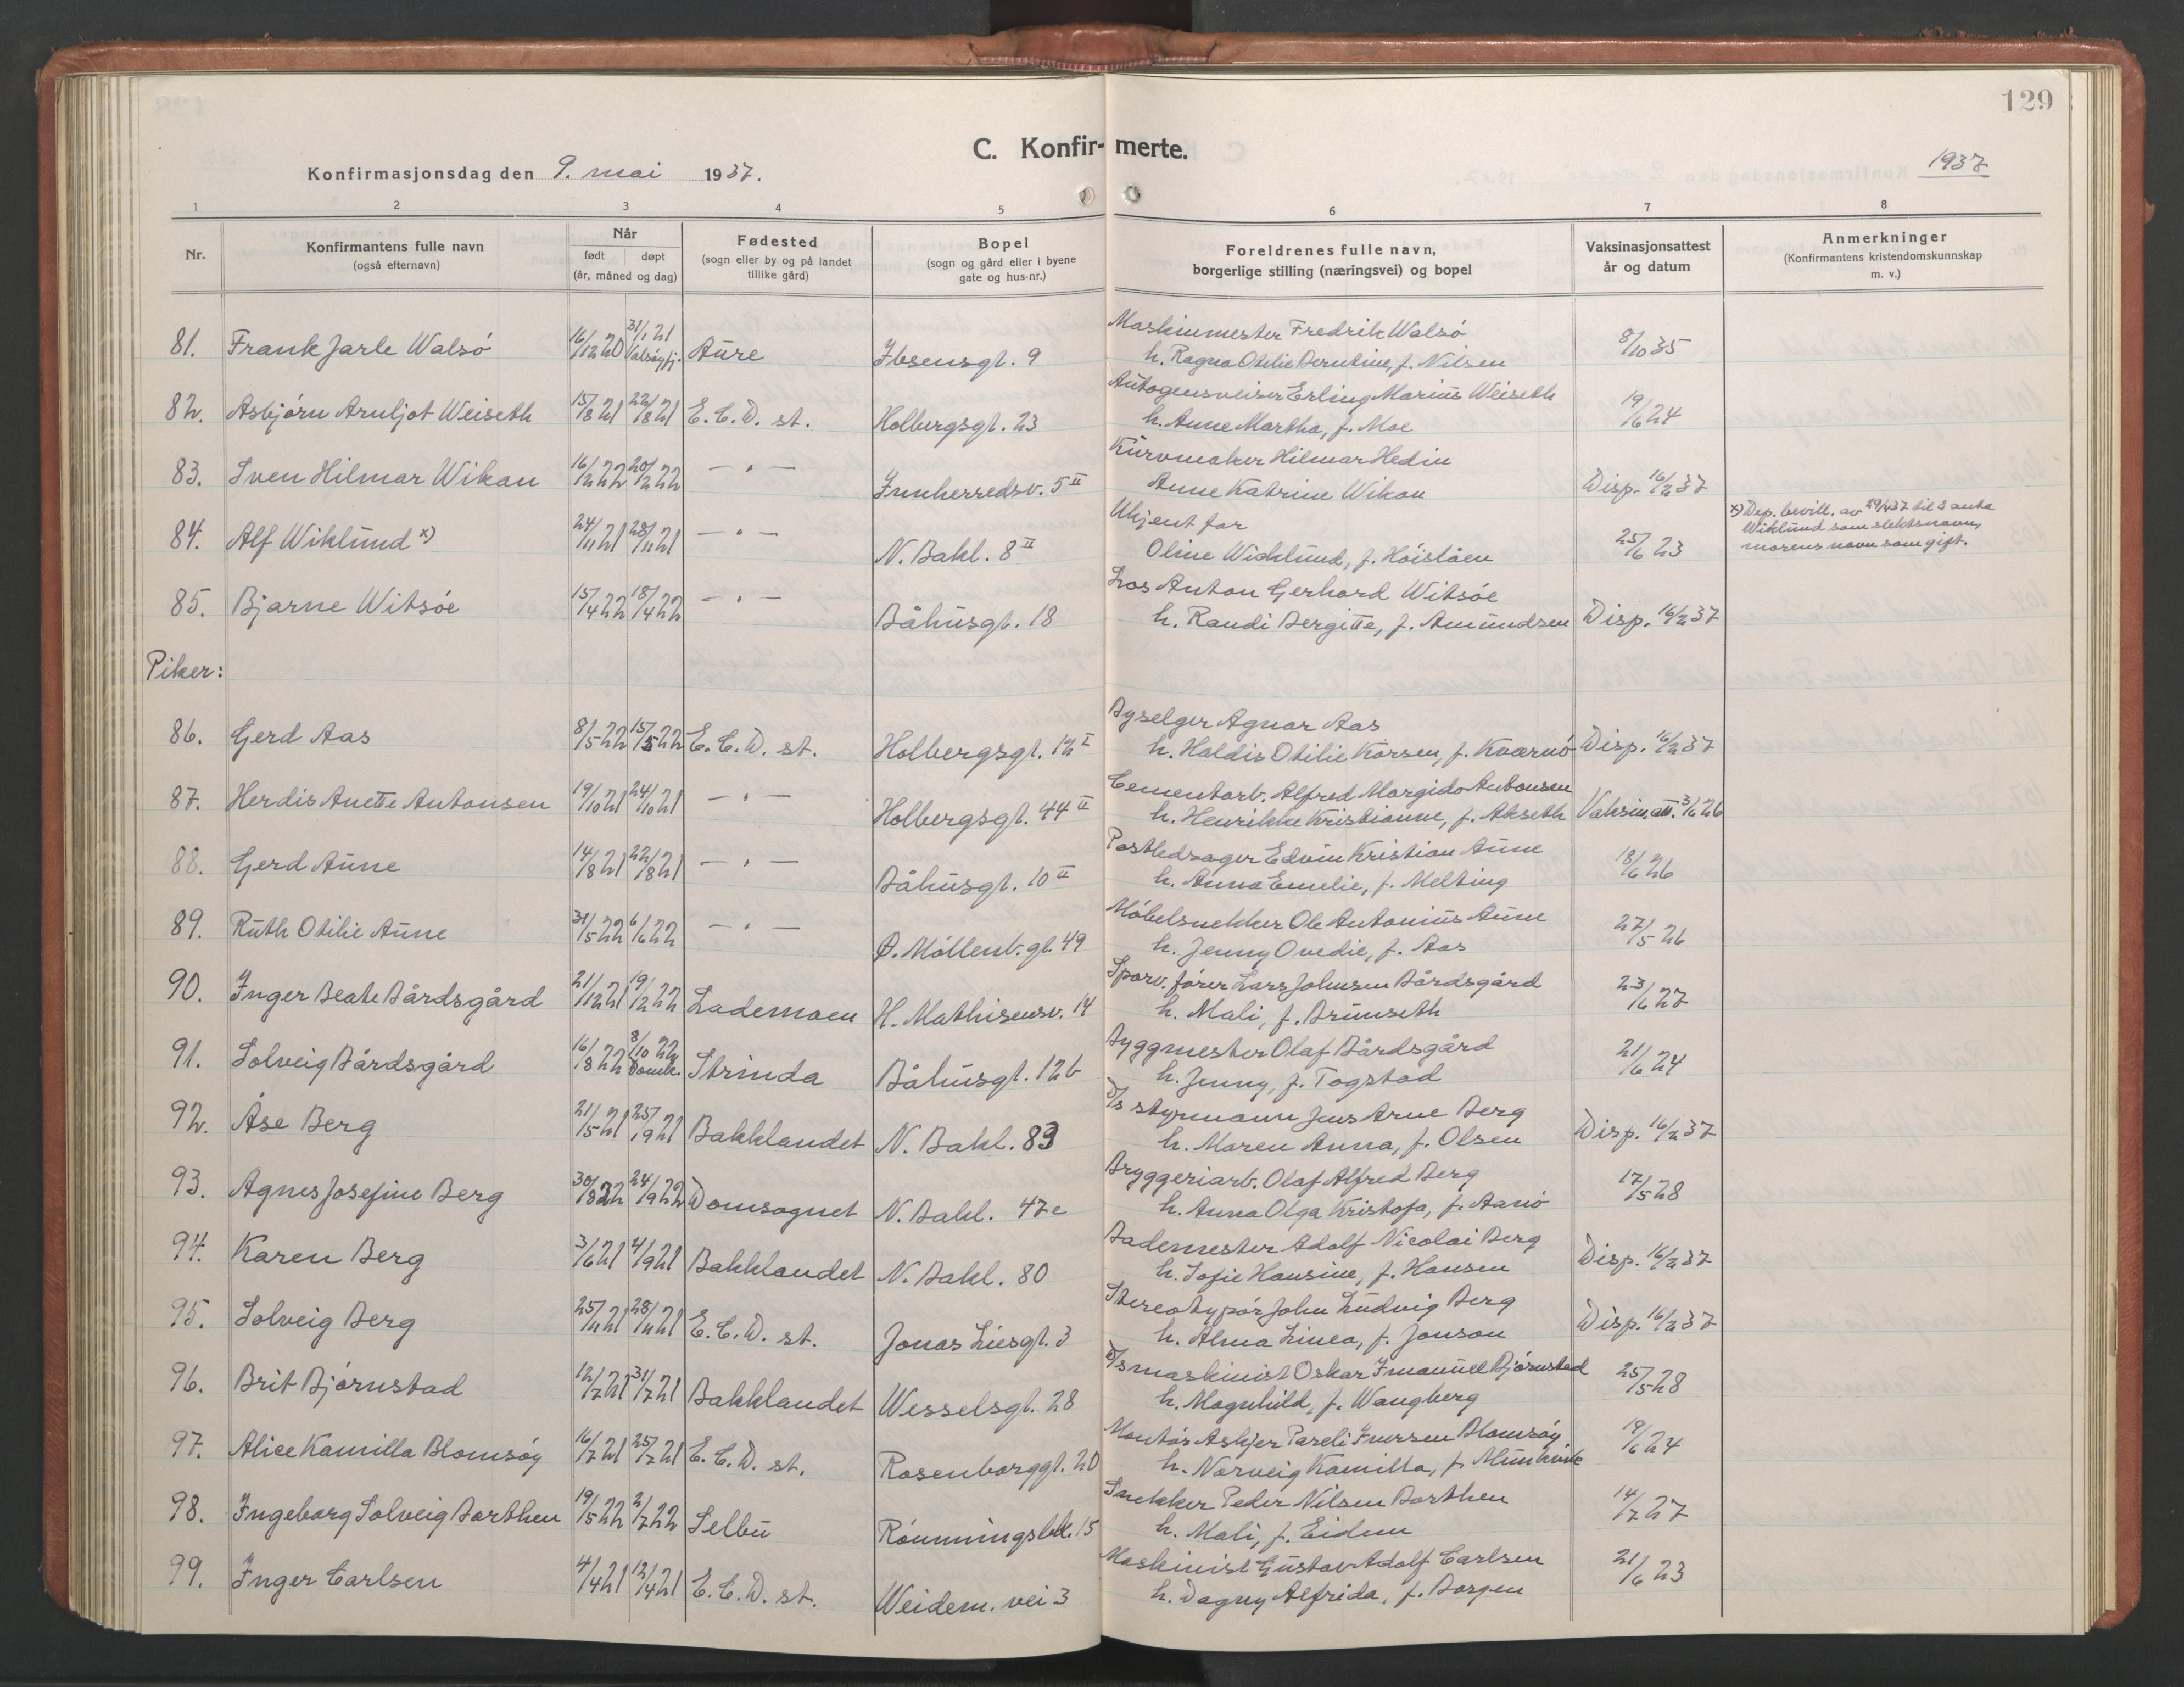 129
C. Konfir- merte.
Konfirmasjonsdag den 9. mai 1937.
1937
1 2 3 4 5 6 7 8
Nr.
Konfirmantens fulle navn
(også efternavn)
Når
født døpt
(år, måned og dag)
Fødested
(sogn eller by og på landet
tillike gård)
Bopel
(sogn og gård eller i byene
gate og hus-nr.)
Foreldrenes fulle navn,
borgerlige stilling (næringsvei) og bopel
Vaksinasjonsattest
år og datum
Anmerkninger
(Konfirmantens kristendomskunnskap
m. v.)
81. Frank Jarle Walsö 16/12 20 31/1 21 Valsøyfj. Aure Ibsensgt. 9 Maskinmester Fredrik Walsö 8/10 35
h. Ragna Otilie Berntine, f. Nilsen
82. Asbjörn Arnljot Weiseth 15/8 21 22/8 21 E. C. D. st. Holbergsgt. 23 Autogensveiser Erling Marius Weiseth 19/6 24
h. Anne Martha, f. Moe
83. Sven Hilmar Wikan 16/2 22 20/2 22 — " — Innherredsv. 5 II Kurvmaker Hilmar Hedin
Anne Katrine Wikan Disp. 16/2 37
84. Alf Wiklund x) 24/11 21 28/11 21 — " — N. Bakl. 8 II Ukjent far
Oline Wicklund, f. Höislöen 25/6 23
x) Dep. bevill. av 29/4 37 til å anta
Wiklund som slektsnavn,
morens navn som gift.
85. Bjarne Witsöe 15/4 22 18/4 22 — " — Båhusgt. 18 Los Anton Gerhard Witsöe
h. Randi Bergitte, f. Amundsen Disp. 16/2 37
Piker:
86. Gerd Aas 8/5 22 15/5 22 E. C. D. st. Holbergsgt. 12 I Byselger Agnar Aas
h. Haldis Otilie Karsen, f. Kværnö Disp. 16/2 37
87. Herdis Anette Antonsen 19/10 21 24/10 21 — " — Holbergsgt. 44 II Cementarb. Alfred Margido Antonsen
h. Henrikke Kristianne, f. Akseth Vaksin. att. 3/6 26
88. Gerd Aune 14/8 21 22/8 21 — " — Båhusgt. 10 II Postbedrager Edvin Kristian Aune 18/6 26
h. Anna Emelie, f. Melting
89. Ruth Otilie Aune 31/5 22 6/6 22 — " — Ø. Möllenb. gt. 49 Möbelsnekker Ole Antonius Aune 27/5 26
h. Jenny Ovedie, f. Aas
90. Inger Beate Bårdsgård 21/12 21 19/2 22 Lademoen H. Mathisensv. 14 Sporv. förer Lars Johnsen Bårdsgård 23/6 27
h. Mali, f. Brunseth
91. Solveig Bårdsgård 16/8 22 8/10 22 Domk. Strinda Båhusgt. 12b Byggmester Olaf Bårdsgård 21/6 24
h. Jenny, f. Togstad
92. Åse Berg 21/5 21 25/9 21 Bakklandet N. Bakl. 83 D/s styrmann Jens Arne Berg
h. Maren Anna, f. Olsen Disp. 16/2 37
93. Agnes Josefine Berg 30/8 22 24/9 22 Domsognet N. Bakl. 47c Bryggeriarb. Olaf Alfred Berg 17/5 28
h. Anna Olga Kristofa, f. Aanö
94. Karen Berg 3/6 21 4/9 21 Bakklandet N. Bakl. 80 Bademester Adolf Nicolai Berg
h. Sofie Hansine, f. Hansen Disp. 16/2 37
95. Solveig Berg 25/11 21 28/11 21 E. C. D. st. Jonas Liesgt. 3 Stereotypör John Ludvig Berg
h. Alma Linea, f. Jonson Disp. 16/2 37
96. Brit Björnstad 12/7 21 31/7 21 Bakklandet Wesselsgt. 28 D/s maskinist Oskar Imanuel Björnstad 25/5 28
h. Magnhild, f. Wangberg
97. Alice Kamilla Blomsöy 16/7 21 25/7 21 E. C. D. st. Rosenborggt. 20 Montör Askjer Pareli Iversen Blomsöy 19/6 24
h. Norveig Kamilla, f.
98. Ingeborg Solveig Borthen 19/5 22 2/7 22 Selbu Rönningsbk. 15 Snekker Peder Nilsen Borthen 14/7 27
h. Mali, f. Eidem
99. Inger Carlsen 4/4 21 12/4 21 E. C. D. st. Weidem. vei 3 Maskinist Gustav Adolf Carlsen 21/6 23
h. Dagny Alfrida, f. Borgen